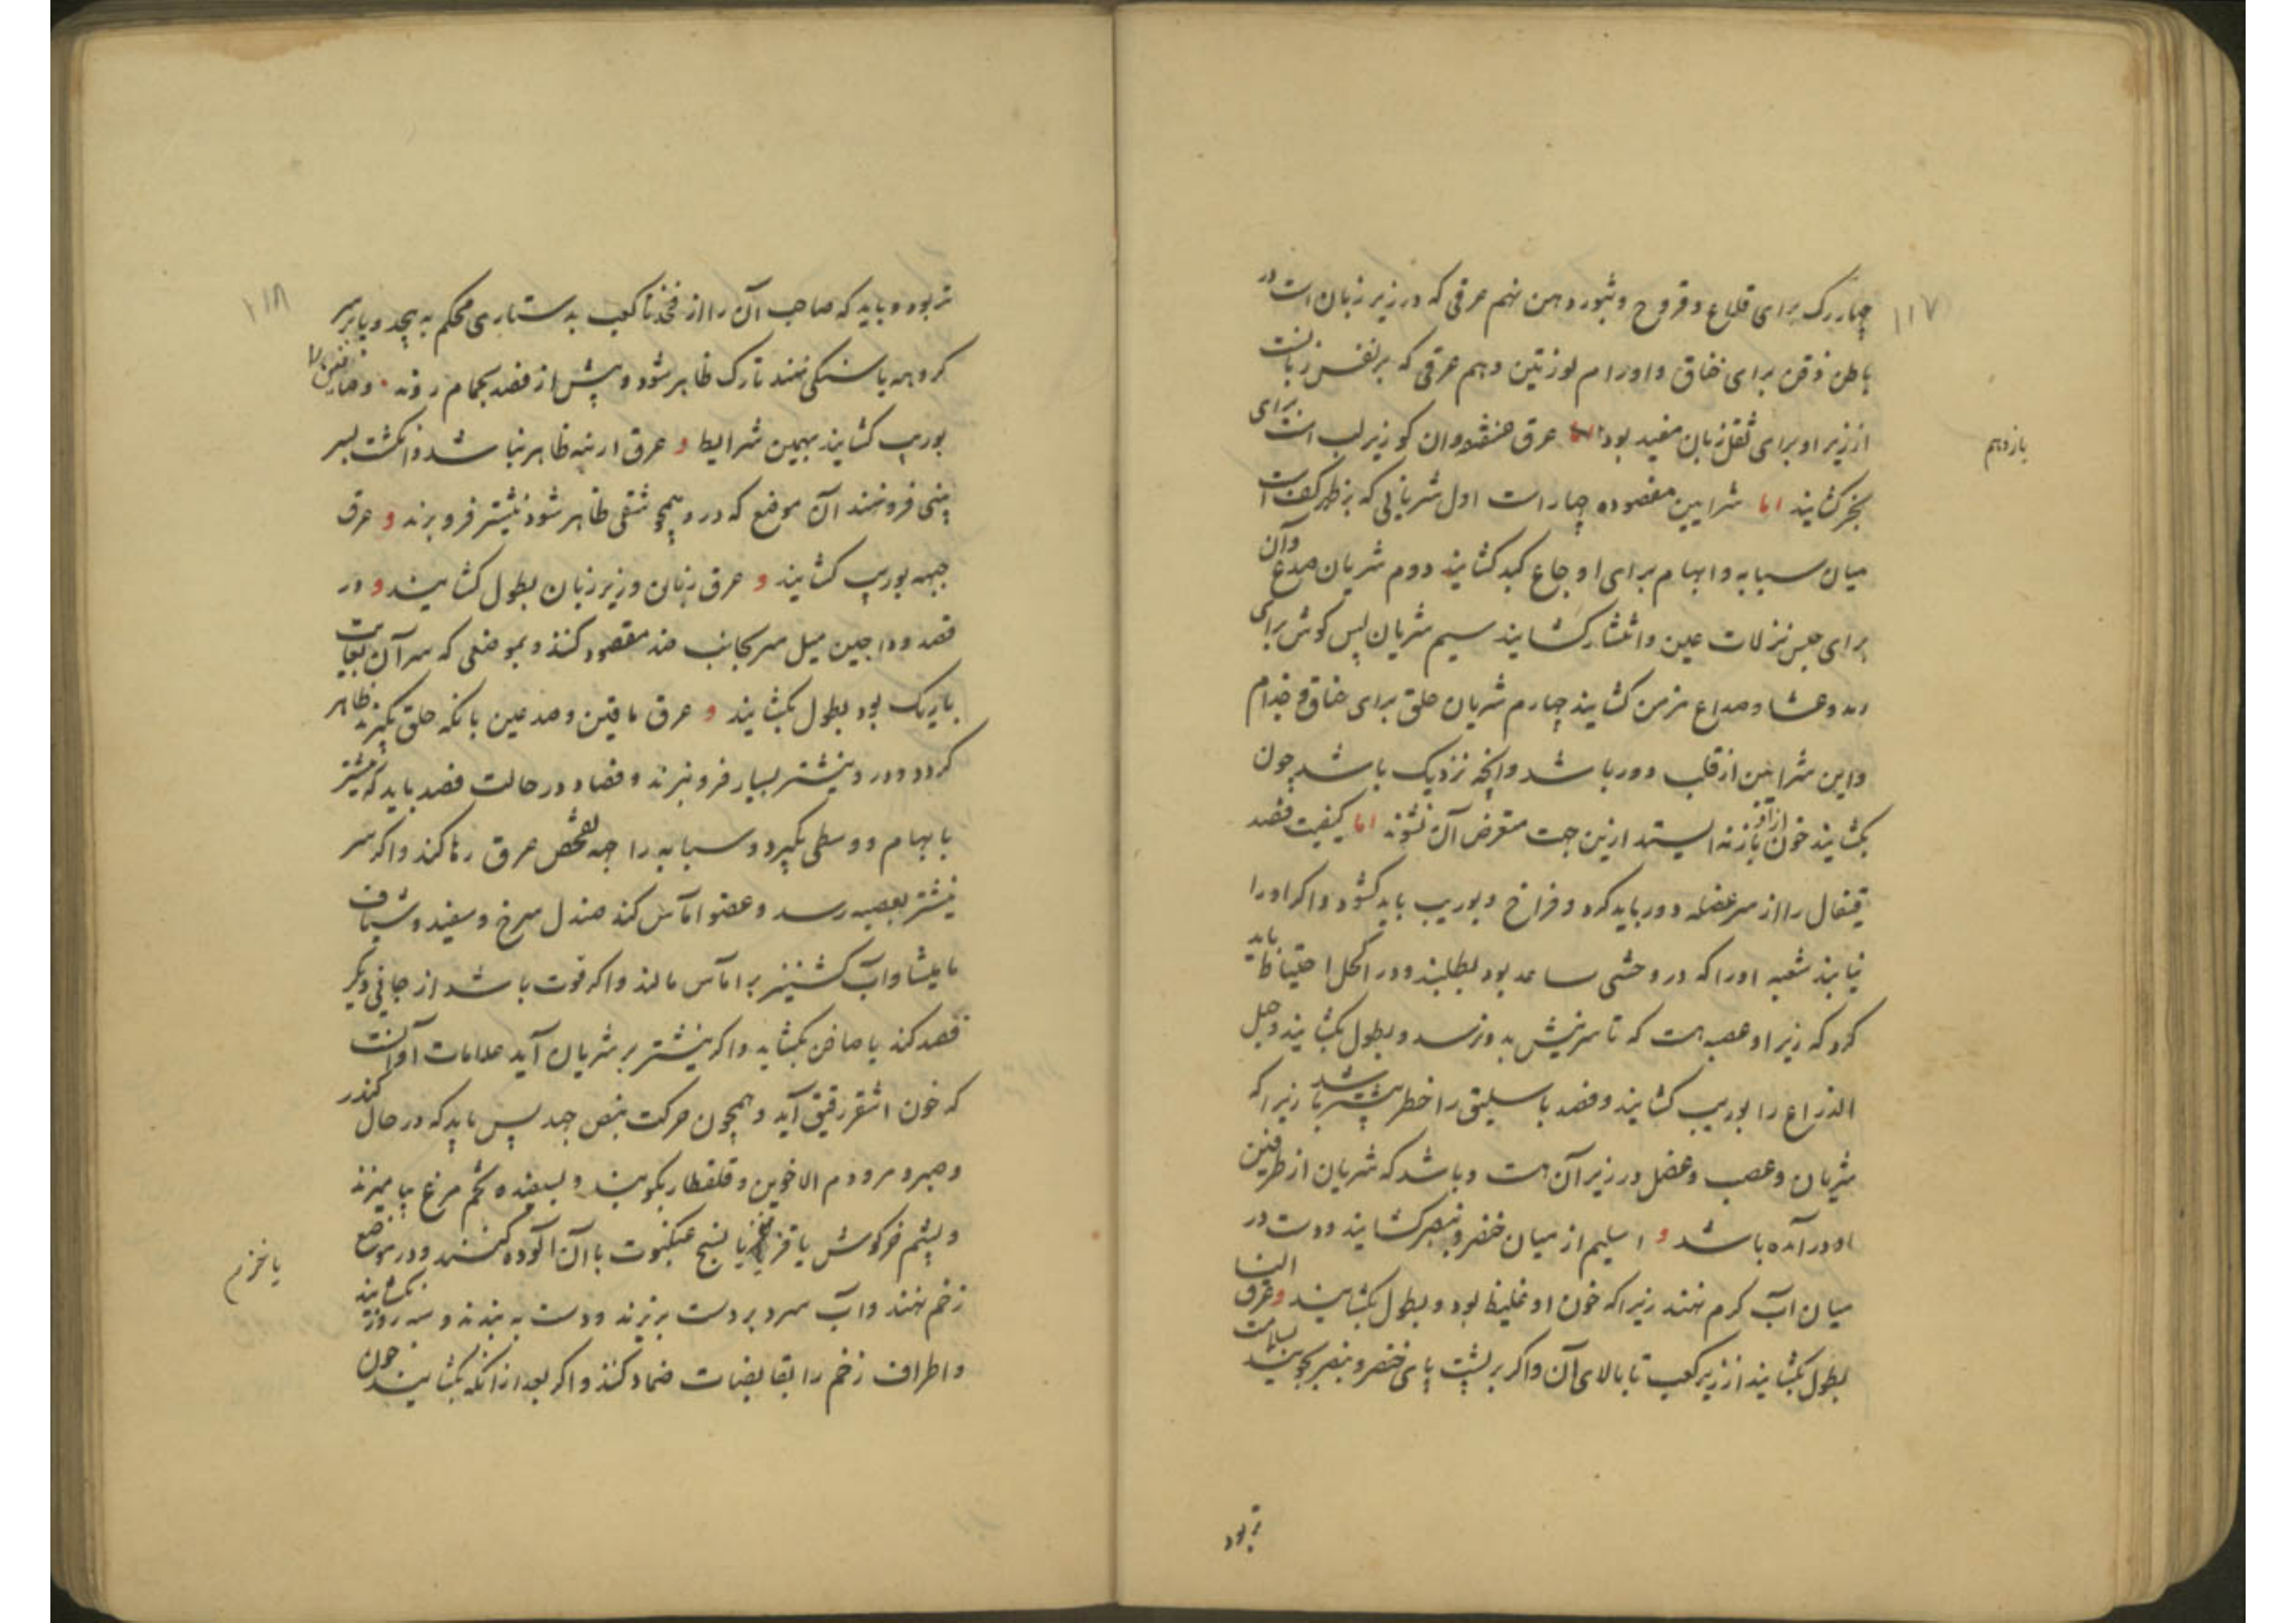 ۱۱۷
چهاررک برای قلاع و قروح و بثور دهن نهم عرقی که در زیر زبان است در
باطن ذقن برای خناق و اورام لوزتین دهم عرقی که بر نفس زبانست
از زیر او برای ثقل زبان مفید بود اما عرق عنفقه و آن کو زیر لب است برای
یازدهم
بخر کشایند اما شرایین مفصوده چهار است اول شریانی که بر ظهر کف است
میان سبابه و ابهام برای اوجاع کبد کشایند دوم شریان صدغ و آن
برای حبس نزلات عین و انتشار کشایند سیم شریان پس کوش برای
رمد و عشا و صداع مزمن کشایند چهارم شریان حلق برای خناق و جذام
و این شرایین از قلب دور باشد و آنچه نزدیک باشد چون
بکشایند خون از آن باز نه ایستد ازین جهت متعرض آن نشوند اما کیفیت فصد
قیفال را از سر عضله دور باید کرد و فراخ و بوریب باید کشود و اکر او را
نیابند شعبه او را که در وحشی ساعد بود بطلبند و در اکحل احتیاط باید
کرد که زیر او عصبه است که تا سر نیش بدو نرسد و بطول بکشایند و حبل
الذراع را بوریب کشایند و فصد باسلیق را خطر بیشتر باشد زیرا که
شریان و عصب و عضل در زیر آن هست و باشد که شریان از طرفین
او در آمده باشد و اسیلم از میان خنصر و بنصر کشایند و دست در
میان آب کرم نهند زیرا که خون او غلیظ بود و بطول بکشایند و عرق النسا
بطول بکشایند از زیر کعب تا بالای آن و اکر بر پشت پای خنصر و بنصر بجویند بسلامت
تر بود
۱۱۸
تر بود و باید که صاحب آن را از فخذ تا کعب بدستاری محکم به پیچد و پا بر سر
کروهه یا سنکی نهند تا رک ظاهر شود و پیش از فصد بحمام روند و صافن را
بوریب کشایند بهمین شرایط و عرق ارنبه ظاهر نباشد و انکشت بسر
بینی فرو نهند آن موضع که در و همچو شقی ظاهر شود نیشتر فرو برند و عرق
جبهه بوریب کشایند و عرق زنان و زیر زبان بطول کشایند و در
فصد وداجین میل سر بجانب ضد مقصود کنند و بموضعی که سر آن بغایت
باریک بود بطول بکشایند و عرق ماقین و صدغین بانکه حلق بکیرند ظاهر
کردد و درو نیشتر بسیار فرو نبرند و فصاد در حالت فصد باید که نیشتر
بابهام و وسطی بکیرد و سبابه را جهه تفحص عرق رها کند و اکر سر
نیشتر بعصبه رسد و عضو اماس کند صندل سرخ و سفید و شیاف
مامیثا و آب کشنیز بر اماس مالند و اکر قوت باشد از جانبی دیکر
فصد کند یا صافن بکشاید و اکر نیشتر بر شریان آید علامات او آنست
که خون اشقر رقیق آید و همچون حرکت نبض جهد پس باید که در حال کندر
و صبر و مر و دم الاخوین و قلقطار بکوبند و بسفیده تخم مرغ بیامیزند
و پشم خرکوش یا قز یا نسج عنکبوت با آن آلوده کنند و در موضع
یا خز نرم
زخم نهند و آب سرد بر دست بریزند و دست به بندند و سه روز نکشایند
و اطراف زخم را بقابضات ضماد کنند و اکر بعد از آنکه بکشایند خون